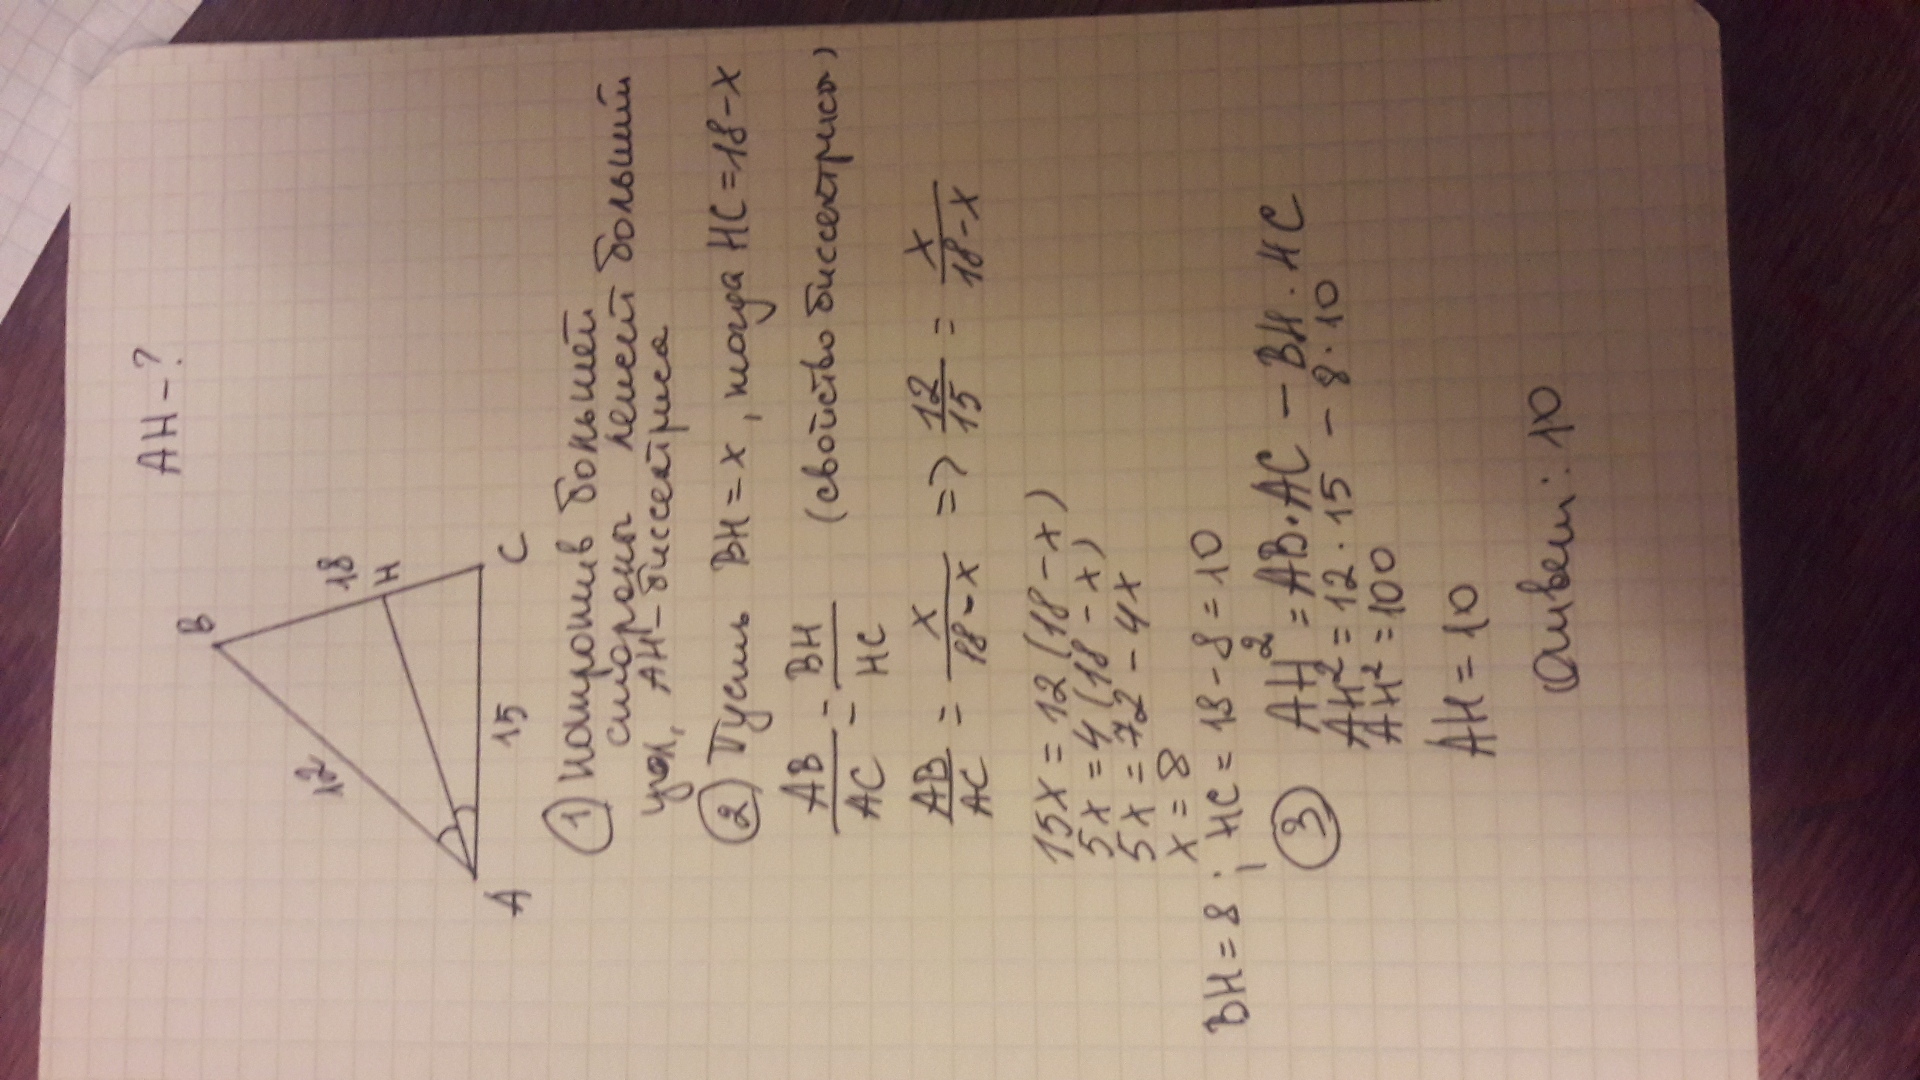 AH - ?
B
12
18
H
A
15
C
① Напротив большей
стороны лежит больший
угол, AH - биссектриса
② Пусть BH = x, тогда HC = 18 - x
AB/AC = BH/HC (свойство биссектрисы)
AB/AC = x/18-x => 12/15 = x/18-x
15x = 12(18-x)
5x = 4(18-x)
5x = 72 - 4x
x = 8
BH = 8; HC = 18 - 8 = 10
③ AH² = AB·AC - BH·HC
AH² = 12·15 - 8·10
AH² = 100
AH = 10
Ответ: 10